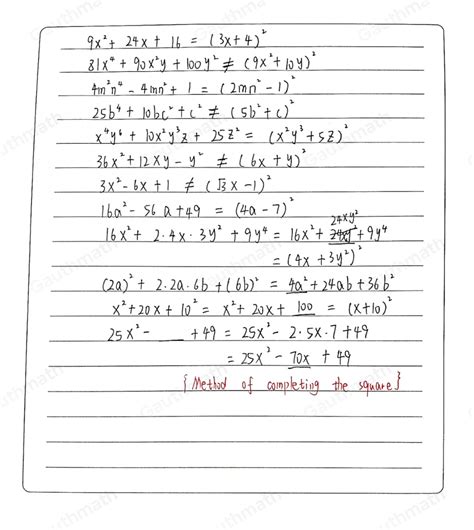 9x² + 24x + 16 = (3x+4)²
81x⁴ + 90x²y + 100y² ≠ (9x²+10y)²
4m²n⁴ - 4mn² + 1 = (2mn² - 1)²
25b⁴ + 10bc² + c² ≠ (5b²+c)²
x⁴y⁶ + 10x²y³z + 25z² = (x²y³+5z)²
36x² + 12xy - y² ≠ (6x + y)²
3x² - 6x + 1 ≠ (√3x - 1)²
16a² - 56a + 49 = (4a - 7)²
16x² + 2·4x·3y² + 9y⁴ = 16x² + 24xy² + 9y⁴
= (4x + 3y²)²
(2a)² + 2·2a·6b + (6b)² = 4a² + 24ab + 36b²
x² + 20x + 10² = x² + 20x + 100 = (x+10)²
25x² - ___ + 49 = 25x² - 2·5x·7 + 49
= 25x² - 70x + 49
{Method of completing the square}